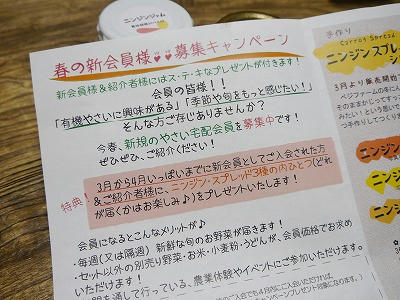 ニンジンジャム
春の新会員様♥♥募集キャンペーン
新会員様&紹介者様にはス・テ・キなプレゼントが付きます!
会員の皆様!!
「有機やさいに興味がある」「季節や旬をもっと感じたい!」
そんな方ご存じありませんか?
今春、新規のやさい宅配会員を募集中です!
ぜひぜひ、ご紹介ください!
特典:
3月から4月いっぱいまでに新会員としてご入会された方
&ご紹介者様に、ニンジン・スプレッド3種の内ひとつ(どれ
が届くかはお楽しみ♪)をプレゼントいたします!
会員になるとこんなメリットが♪
・毎週(又は隔週)新鮮な旬のお野菜が届きます!
・セット以外の別売り野菜・お米・小麦粉・うどんが、会員価格でお求め
いただけます。
を通して行っている、農業体験やイベントにご参加いただけます!
手作り
Carrot Spread
ニンジンスプレ
3月より販売開始
ベジファームの冬に
そのままかじってすっ
みたい!という思いで
つ手作りしてつくりま
ニンジン
ニンジン
ニンジン